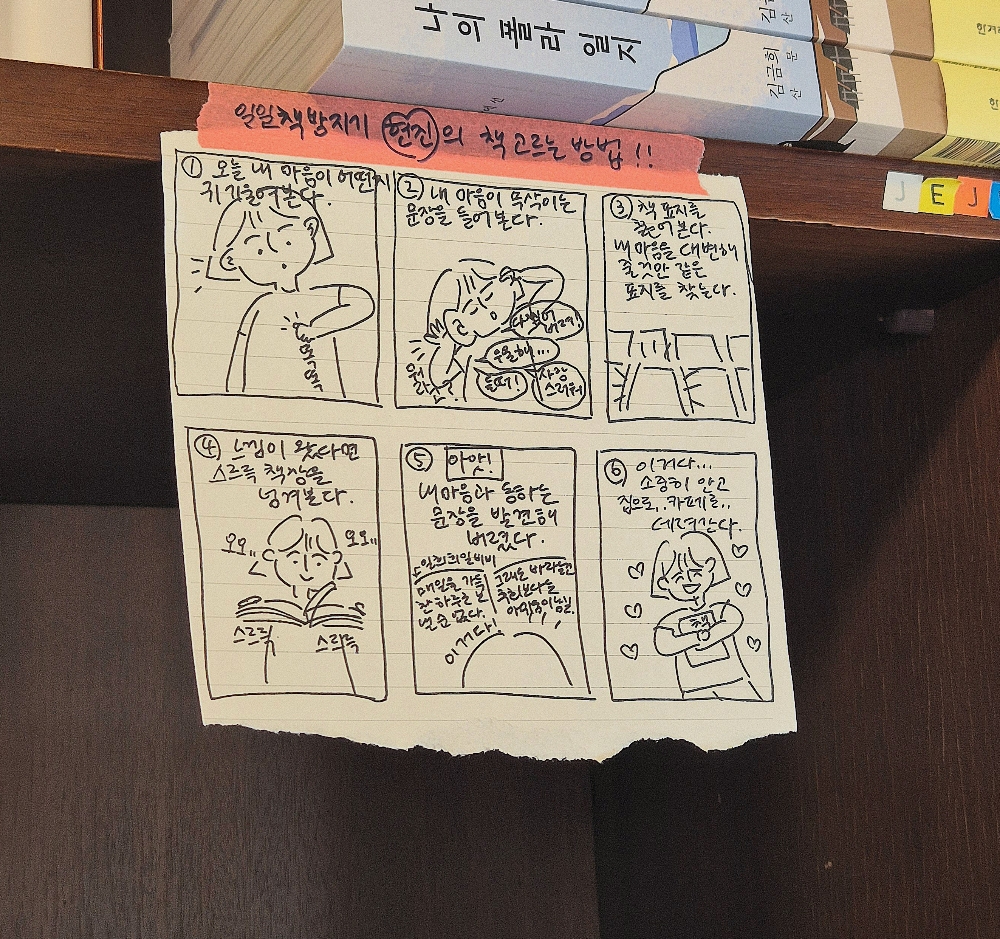 나의 폴라 일지
김금희
산문
한겨
한
J E J
일일책방지기 현진의 책 고르는 방법!!
① 오늘 내 마음이 어떤지
귀 기울여본다.
똑똑똑
② 내 마음이 속삭이는
문장을 들어본다.
우울해...
사랑
스러워
뭐라고?
③ 책 표지를
훑어본다.
내 마음을 대변해
줄 것만 같은
표지를 찾는다.
④ 느낌이 왔다면
스르륵 책장을
넘겨본다.
오오..
오오..
스르륵
스르륵
⑤ 아앗!
내 마음과 통하는
문장을 발견해
버렸다.
매일을 가득
찬 하루로 보
낼 순 없다.
그래도 바라는건
후회보다는
이거다!
⑥ 이거다...
소중히 안고
집으로..카페로..
데려간다.
책